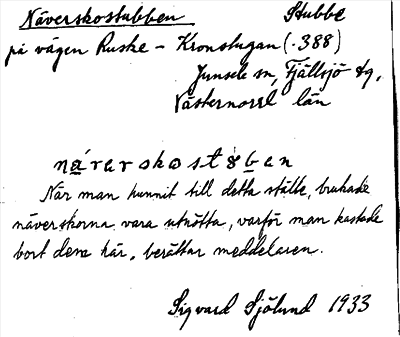 Näverskostubben Stubbe
på vägen Ruske - Kronstugan (.388)
Junsele sn, Fjällsjö tg,
Västernorrl län
När man hunnit till detta ställe, brukade
näverskorna vara utnötta, varför man kastade
bort dem här, berättar meddelaren.
Sigvard Sjölund 1933